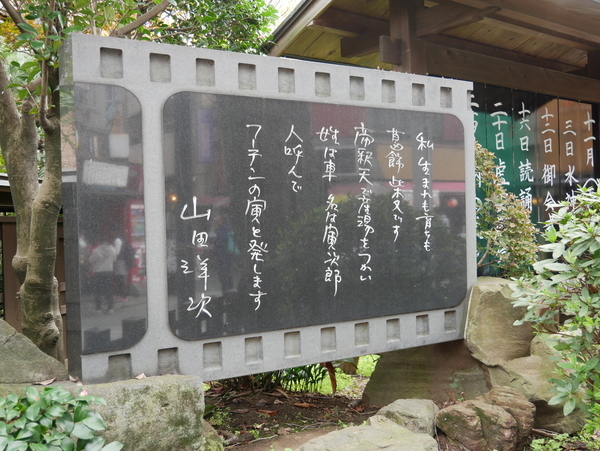 私 生まれも育ちも
葛飾柴又です
帝釈天で産湯をつかい
姓は車 名は寅次郎
人呼んで
フーテンの寅と発します
山田洋次
十一月
三日水
十二日御会
十六日読誦
二十日堂